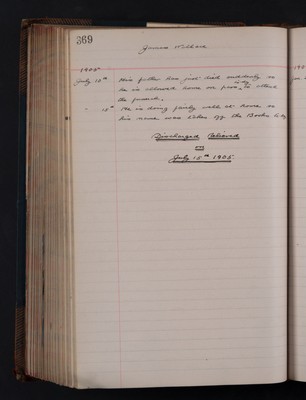 369
James
1905
July 10th His father has just died suddenly so
he is allowed home on pass, to attend
the funeral.
" 15th He is doing fairly well at home so
his name was taken off the Books to-day
Discharged Relieved
July 15th 1905